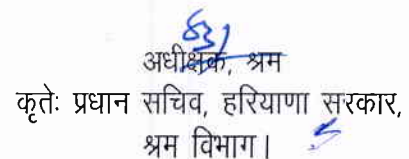 अधीक्षक, श्रम
कृतेः प्रधान सचिव, हरियाणा सरकार,
श्रम विभाग।